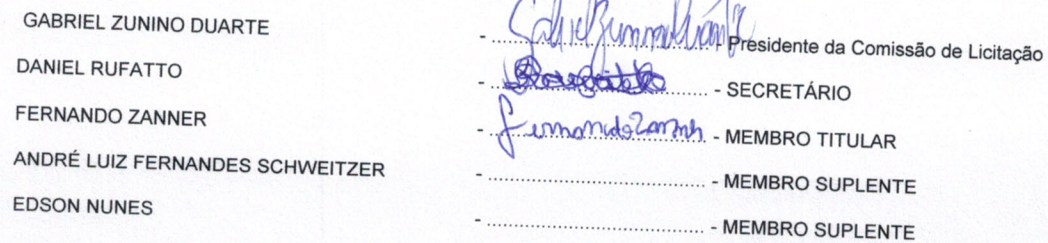 GABRIEL ZUNINO DUARTE - ........................ - Presidente da Comissão de Licitação
DANIEL RUFATTO - ........................ - SECRETÁRIO
FERNANDO ZANNER - ........................ - MEMBRO TITULAR
ANDRÉ LUIZ FERNANDES SCHWEITZER - ........................ - MEMBRO SUPLENTE
EDSON NUNES - ........................ - MEMBRO SUPLENTE